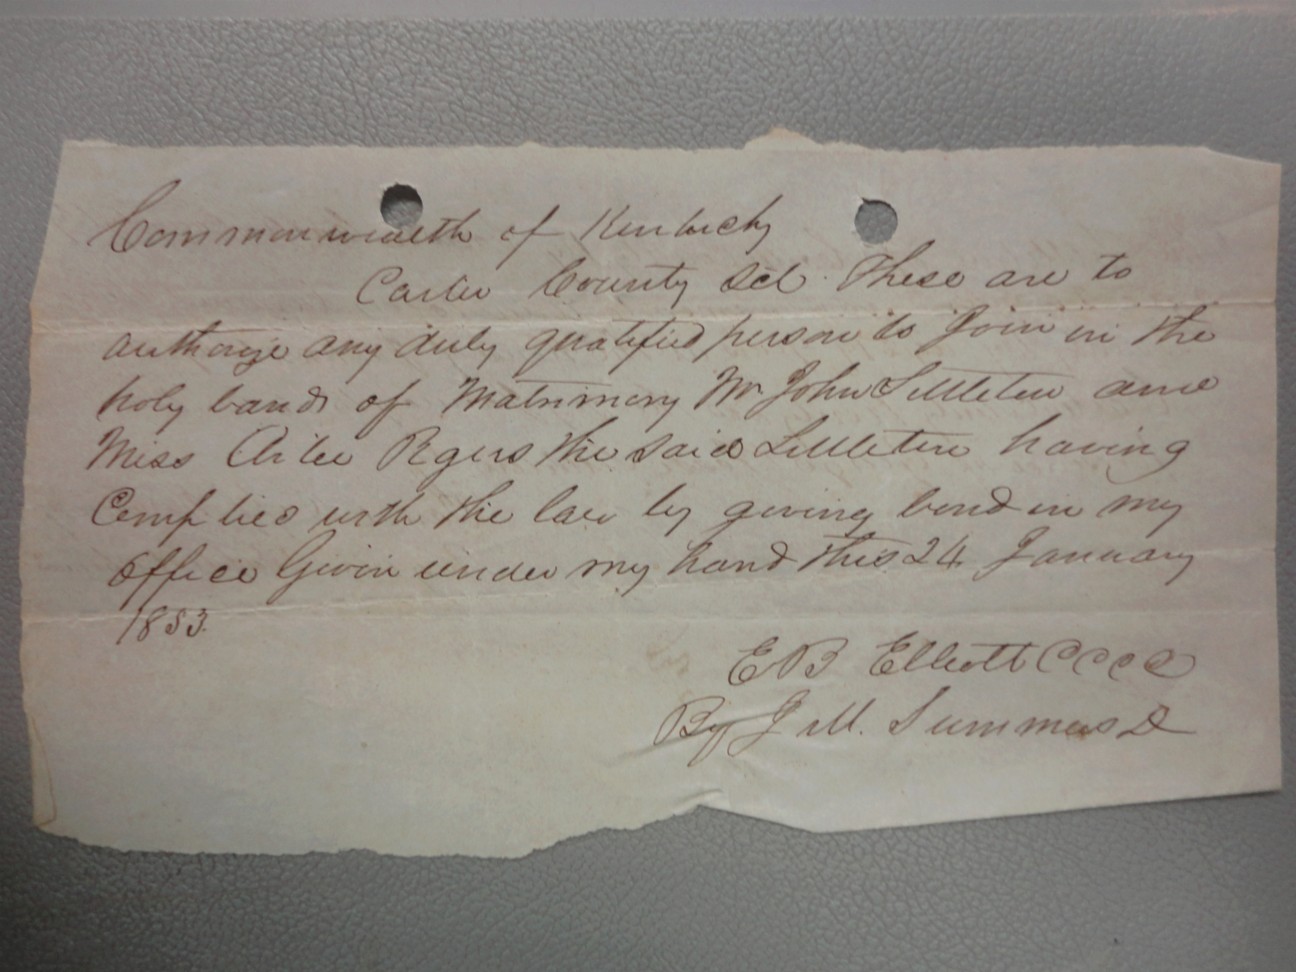 Commonwealth of Kentucky
Carter County Sct. These are to
authorize any duly qualified person to Join in the
holy bands of Matrimony Mr John Littleton and
Miss Rgers the said Littleton having
Complied with the law by giving bond in my
office Given under my hand this 24 January
1853.
E B Elliott C C C C
By J M. Summers D